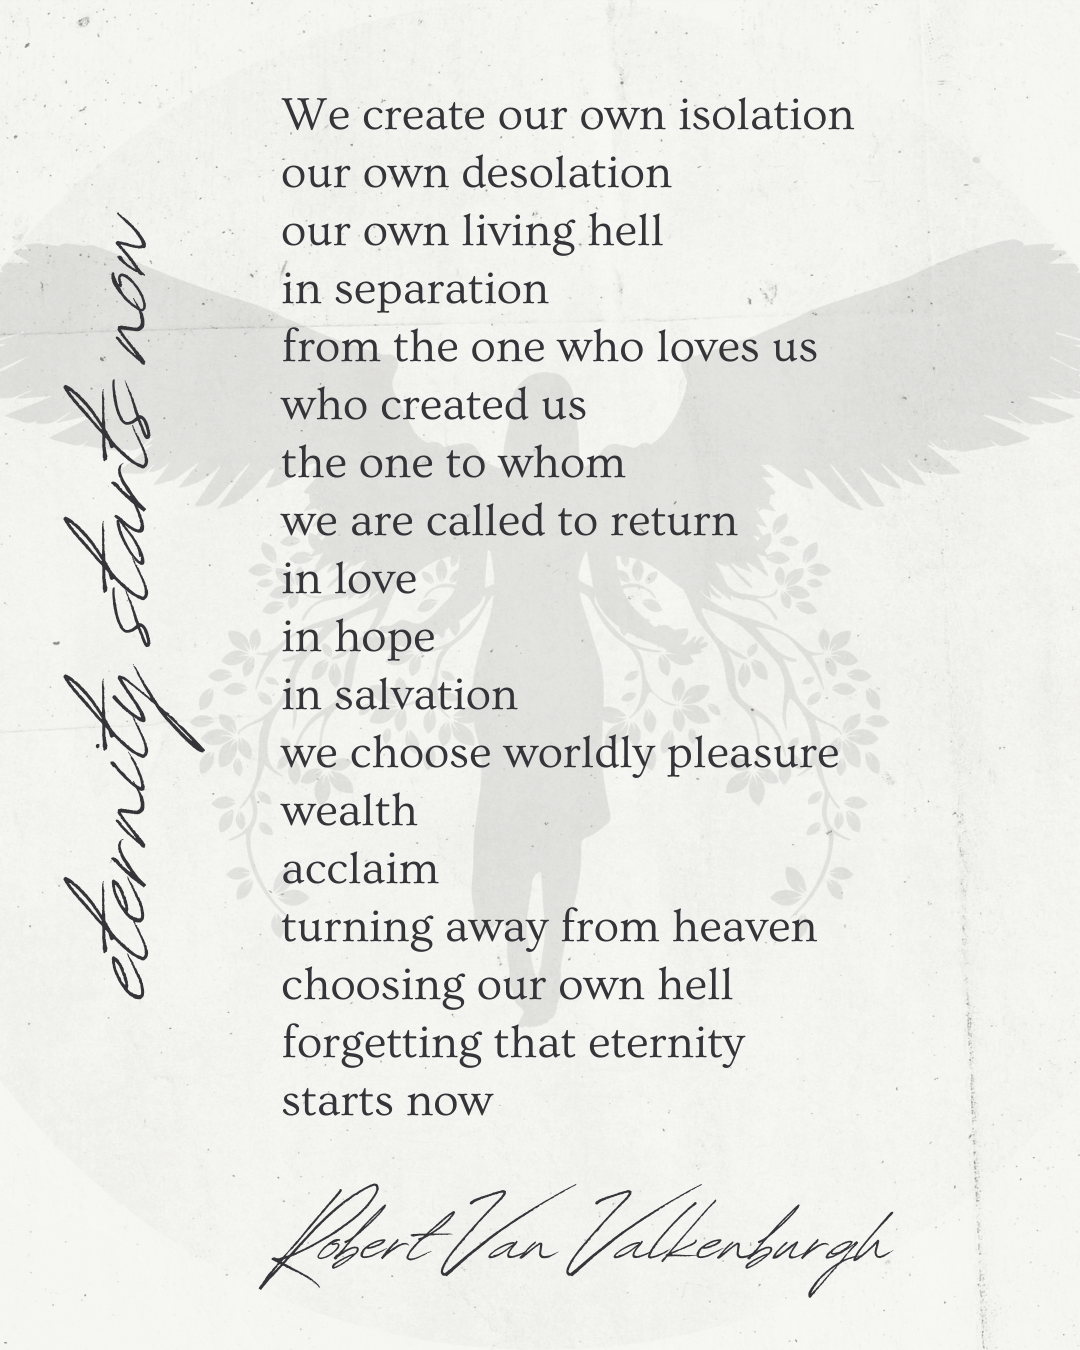 eternity starts now
We create our own isolation
our own desolation
our own living hell
in separation
from the one who loves us
who created us
the one to whom
we are called to return
in love
in hope
in salvation
we choose worldly pleasure
wealth
acclaim
turning away from heaven
choosing our own hell
forgetting that eternity
starts now
Robert Van Valkenburgh